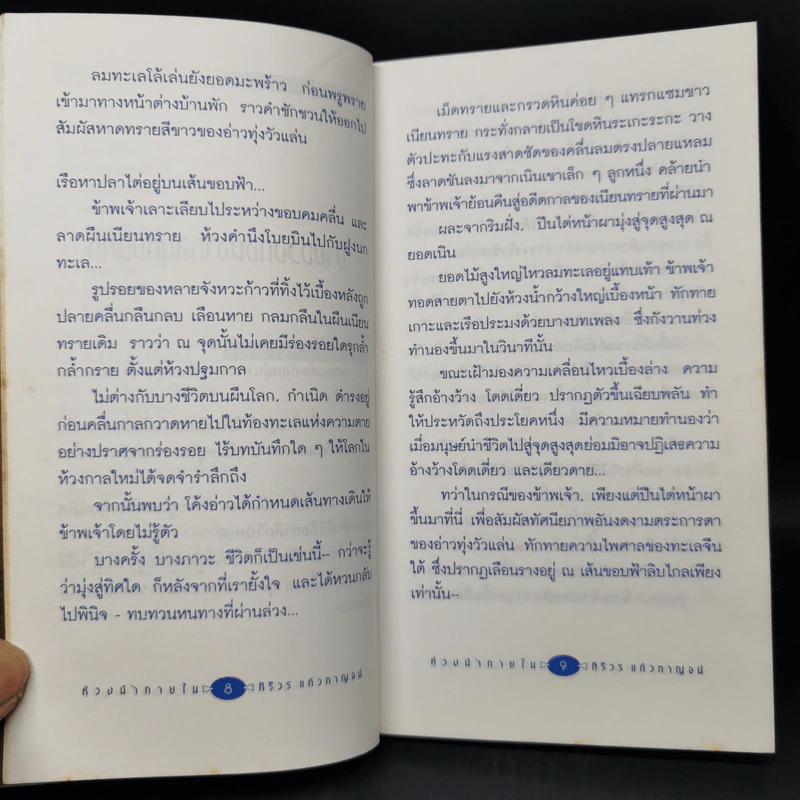 ลมทะเลโล้เล่นยังยอดมะพร้าว ก่อนพรูพราย
เข้ามาทางหน้าต่างบ้านพัก ราวคำชักชวนให้ออกไป
สัมผัสหาดทรายสีขาวของอ่าวทุ่งวัวแล่น
เรือหาปลาไต่อยู่บนเส้นขอบฟ้า...
ข้าพเจ้าเลาะเลียบไประหว่างขอบคมคลื่น และ
ลาดผืนเนียนทราย ห้วงคำนึงโบยบินไปกับฝูงนก
ทะเล...
รูปรอยของหลายจังหวะก้าวที่ทิ้งไว้เบื้องหลังถูก
ปลายคลื่นกลืนกลบ เลือนหาย กลมกลืนในผืนเนียน
ทรายเดิม ราวว่า ณ จุดนั้นไม่เคยมีร่องรอยใดรุกล้ำ
กล้ำกราย ตั้งแต่ห้วงปฐมกาล
ไม่ต่างกับบางชีวิตบนผืนโลก, กำเนิด ดำรงอยู่
ก่อนคลื่นกาลกวาดหายไปในท้องทะเลแห่งความตาย
อย่างปราศจากร่องรอย ไร้บทบันทึกใด ๆ ให้โลกใน
ห้วงกาลใหม่ได้จดจำรำลึกถึง
จากนั้นพบว่า โค้งอ่าวได้กำหนดเส้นทางเดินให้
ข้าพเจ้าโดยไม่รู้ตัว
บางครั้ง บางภาวะ ชีวิตก็เป็นเช่นนี้-- กว่าจะรู้
ว่ามุ่งสู่ทิศใด ก็หลังจากที่เรายั้งใจ และได้หวนกลับ
ไปพินิจ - ทบทวนหนทางที่ผ่านล่วง...
ห้วงน้ำภายใน 8 ศิริวร แก้วกาญจน์
เม็ดทรายและกรวดหินค่อย ๆ แทรกแซมขาว
เนียนทราย กระทั่งกลายเป็นโขดหินระเกะระกะ วาง
ตัวปะทะกับแรงสาดซัดของคลื่นลมตรงปลายแหลม
ซึ่งลาดชันลงมาจากเนินเขาเล็ก ๆ ลูกหนึ่ง คล้ายนำ
พาข้าพเจ้าย้อนคืนสู่อดีตกาลของเนียนทรายที่ผ่านมา
ผละจากริมฝั่ง, ปีนไต่หน้าผามุ่งสู่จุดสูงสุด ณ
ยอดเนิน
ยอดไม้สูงใหญ่ไหวลมทะเลอยู่แทบเท้า ข้าพเจ้า
ทอดสายตาไปยังห้วงน้ำกว้างใหญ่เบื้องหน้า ทักทาย
เกาะและเรือประมงด้วยบางบทเพลง ซึ่งกังวานท่วง
ทำนองขึ้นมาในวินาทีนั้น
ขณะเฝ้ามองความเคลื่อนไหวเบื้องล่าง ความ
รู้สึกอ้างว้าง โดดเดี่ยว ปรากฏตัวขึ้นเฉียบพลัน ทำ
ให้ประหวัดถึงประโยคหนึ่ง มีความหมายทำนองว่า
เมื่อมนุษย์นำชีวิตไปสู่จุดสูงสุดย่อมมิอาจปฏิเสธความ
อ้างว้างโดดเดี่ยว และเดียวดาย...
ทว่าในกรณีของข้าพเจ้า, เพียงแต่ปีนไต่หน้าผา
ขึ้นมาที่นี่ เพื่อสัมผัสทัศนียภาพอันงดงามตระการตา
ของอ่าวทุ่งวัวแล่น ทักทายความไพศาลของทะเลจีน
ใต้ ซึ่งปรากฏเลือนรางอยู่ ณ เส้นขอบฟ้าลิบไกลเพียง
เท่านั้น--
ห้วงน้ำภายใน 9 ศิริวร แก้วกาญจน์